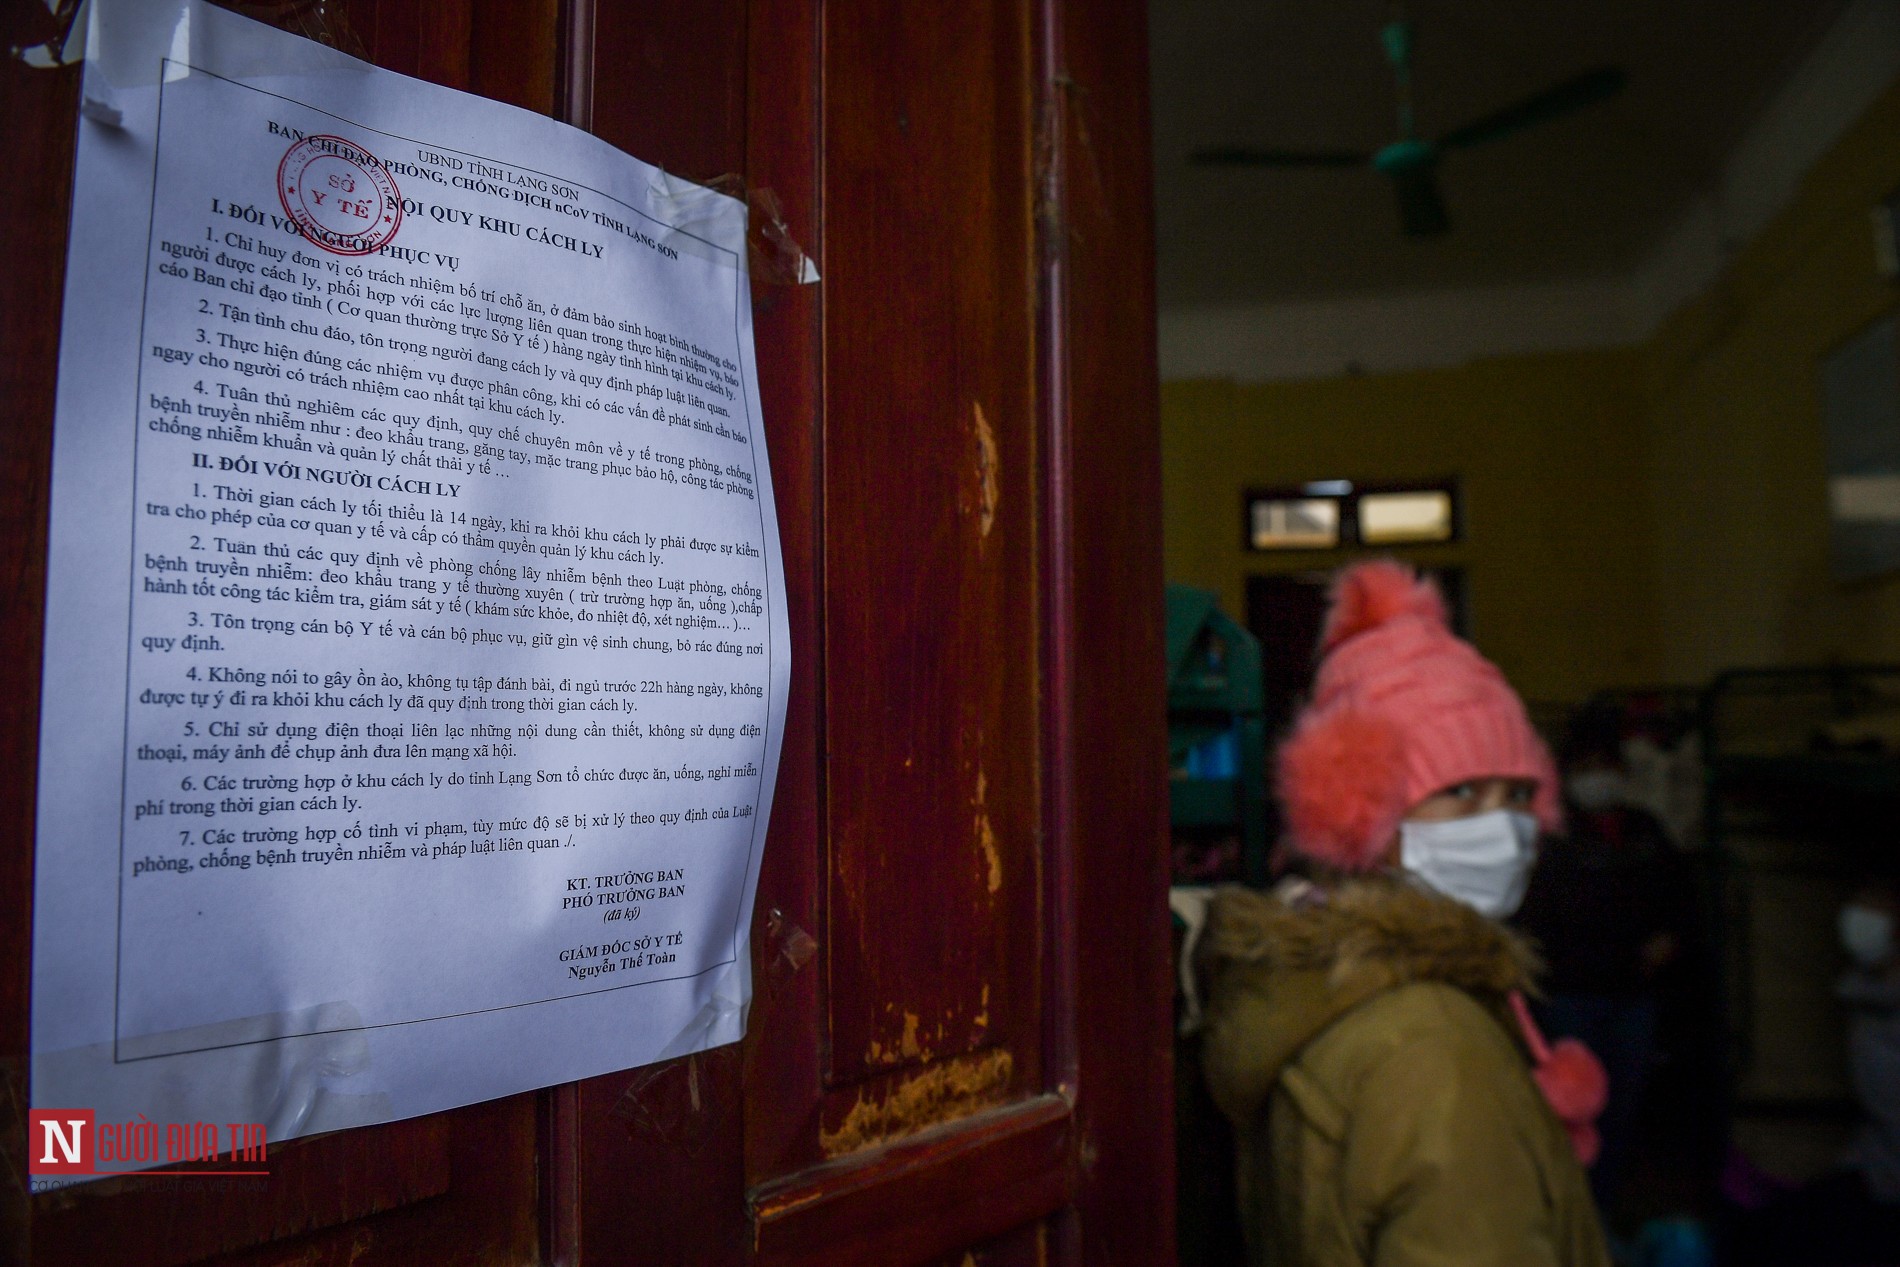 UBND TỈNH LẠNG SƠN
BAN CHỈ ĐẠO PHÒNG, CHỐNG DỊCH nCoV TỈNH LẠNG SƠN
SỞ
Y TẾ
NỘI QUY KHU CÁCH LY
I. ĐỐI VỚI NGƯỜI PHỤC VỤ
1. Chỉ huy đơn vị có trách nhiệm bố trí chỗ ăn, ở đảm bảo sinh hoạt bình thường cho
người được cách ly, phối hợp với các lực lượng liên quan trong thực hiện nhiệm vụ, báo
cáo Ban chỉ đạo tỉnh ( Cơ quan thường trực Sở Y tế ) hàng ngày tình hình tại khu cách ly.
2. Tận tình chu đáo, tôn trọng người đang cách ly và quy định pháp luật liên quan.
3. Thực hiện đúng các nhiệm vụ được phân công, khi có các vấn đề phát sinh cần báo
ngay cho người có trách nhiệm cao nhất tại khu cách ly.
4. Tuân thủ nghiêm các quy định, quy chế chuyên môn về y tế trong phòng, chống
bệnh truyền nhiễm như : đeo khẩu trang, găng tay, mặc trang phục bảo hộ, công tác phòng
chống nhiễm khuẩn và quản lý chất thải y tế ...
II. ĐỐI VỚI NGƯỜI CÁCH LY
1. Thời gian cách ly tối thiểu là 14 ngày, khi ra khỏi khu cách ly phải được sự kiểm
tra cho phép của cơ quan y tế và cấp có thẩm quyền quản lý khu cách ly.
2. Tuân thủ các quy định về phòng chống lây nhiễm bệnh theo Luật phòng, chống
bệnh truyền nhiễm: đeo khẩu trang y tế thường xuyên ( trừ trường hợp ăn, uống ),chấp
hành tốt công tác kiểm tra, giám sát y tế ( khám sức khỏe, đo nhiệt độ, xét nghiệm... )...
3. Tôn trọng cán bộ Y tế và cán bộ phục vụ, giữ gìn vệ sinh chung, bỏ rác đúng nơi
quy định.
4. Không nói to gây ồn ào, không tụ tập đánh bài, đi ngủ trước 22h hàng ngày, không
được tự ý đi ra khỏi khu cách ly đã quy định trong thời gian cách ly.
5. Chỉ sử dụng điện thoại liên lạc những nội dung cần thiết, không sử dụng điện
thoại, máy ảnh để chụp ảnh đưa lên mạng xã hội.
6. Các trường hợp ở khu cách ly do tỉnh Lạng Sơn tổ chức được ăn, uống, nghỉ miễn
phí trong thời gian cách ly.
7. Các trường hợp cố tình vi phạm, tùy mức độ sẽ bị xử lý theo quy định của Luật
phòng, chống bệnh truyền nhiễm và pháp luật liên quan ./.
KT. TRƯỞNG BAN
PHÓ TRƯỞNG BAN
(đã ký)
GIÁM ĐỐC SỞ Y TẾ
Nguyễn Thế Toàn
NGƯỜI ĐƯA TIN